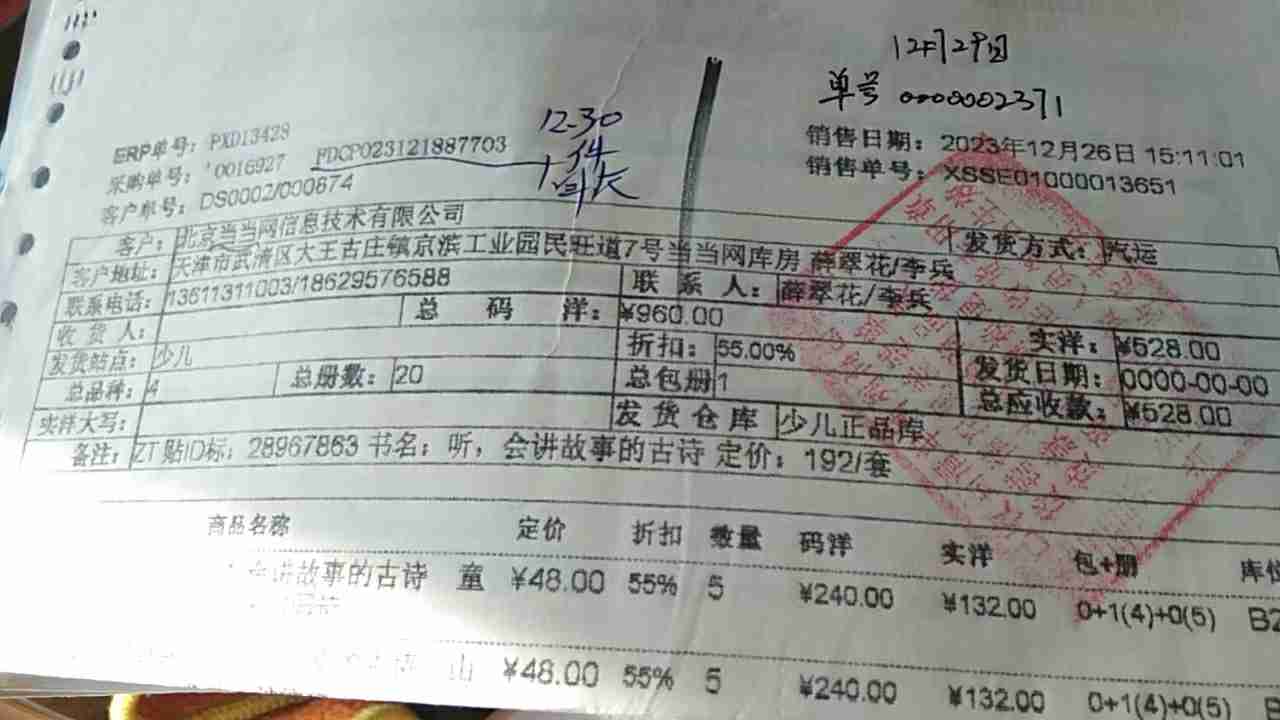 12月29日
单号 0000002371
12-30
1件
ERP单号: PXD13428
采购单号: '0016927 PDCP023121887703
客户单号: DS0002/000674
销售日期: 2023年12月26日 15:11:01
销售单号: XSSE01000013651
客户: 北京当当网信息技术有限公司 发货方式: 汽运
客户地址: 天津市武清区大王古庄镇京滨工业园民旺道7号当当网库房 薛翠花/李兵
联系电话: 13611311003/18629576588 联系人: 薛翠花/李兵
收货人: 总码洋: ¥960.00 实洋: ¥528.00
发货站点: 少儿 折扣: 55.00% 发货日期: 0000-00-00
总品种: 4 总册数: 20 总包册 1 总应收款: ¥528.00
实洋大写: 发货仓库 少儿正品库
备注: ZT 贴ID标: 28967863 书名: 听, 会讲故事的古诗 定价: 192/套
商品名称 定价 折扣 数量 码洋 实洋 包+册 库位
会讲故事的古诗 童 ¥48.00 55% 5 ¥240.00 ¥132.00 0+1(4)+0(5) B2
山 ¥48.00 55% 5 ¥240.00 ¥132.00 0+1(4)+0(5)